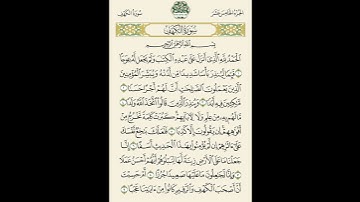 الجزء الخامس عشر
سورة الكهف
سورة الكهف
بسم الله الرحمن الرحيم
الحمد لله الذي أنزل على عبده الكتب ولم يجعل له عوجا ١
قيما لينذر بأسا شديدا من لدنه ويبشر المؤمنين
الذين يعملون الصلحت أن لهم أجرا حسنا ٢
مكثين فيه أبدا ٣ وينذر الذين قالوا اتخذ الله ولدا ٤
ما لهم به من علم ولا لآبائهم كبرت كلمة تخرج من
أفوههم إن يقولون إلا كذبا ٥ فلعلك بخع نفسك
على ءاثرهم إن لم يؤمنوا بهذا الحديث أسفا ٦ إنا
جعلنا ما على الأرض زينة لها لنبلوهم أيهم أحسن عملا ٧
وإنا لجعلون ما عليها صعيدا جرزا ٨ أم حسبت
أن أصحب الكهف والرقيم كانوا من ءايتنا عجبا ٩